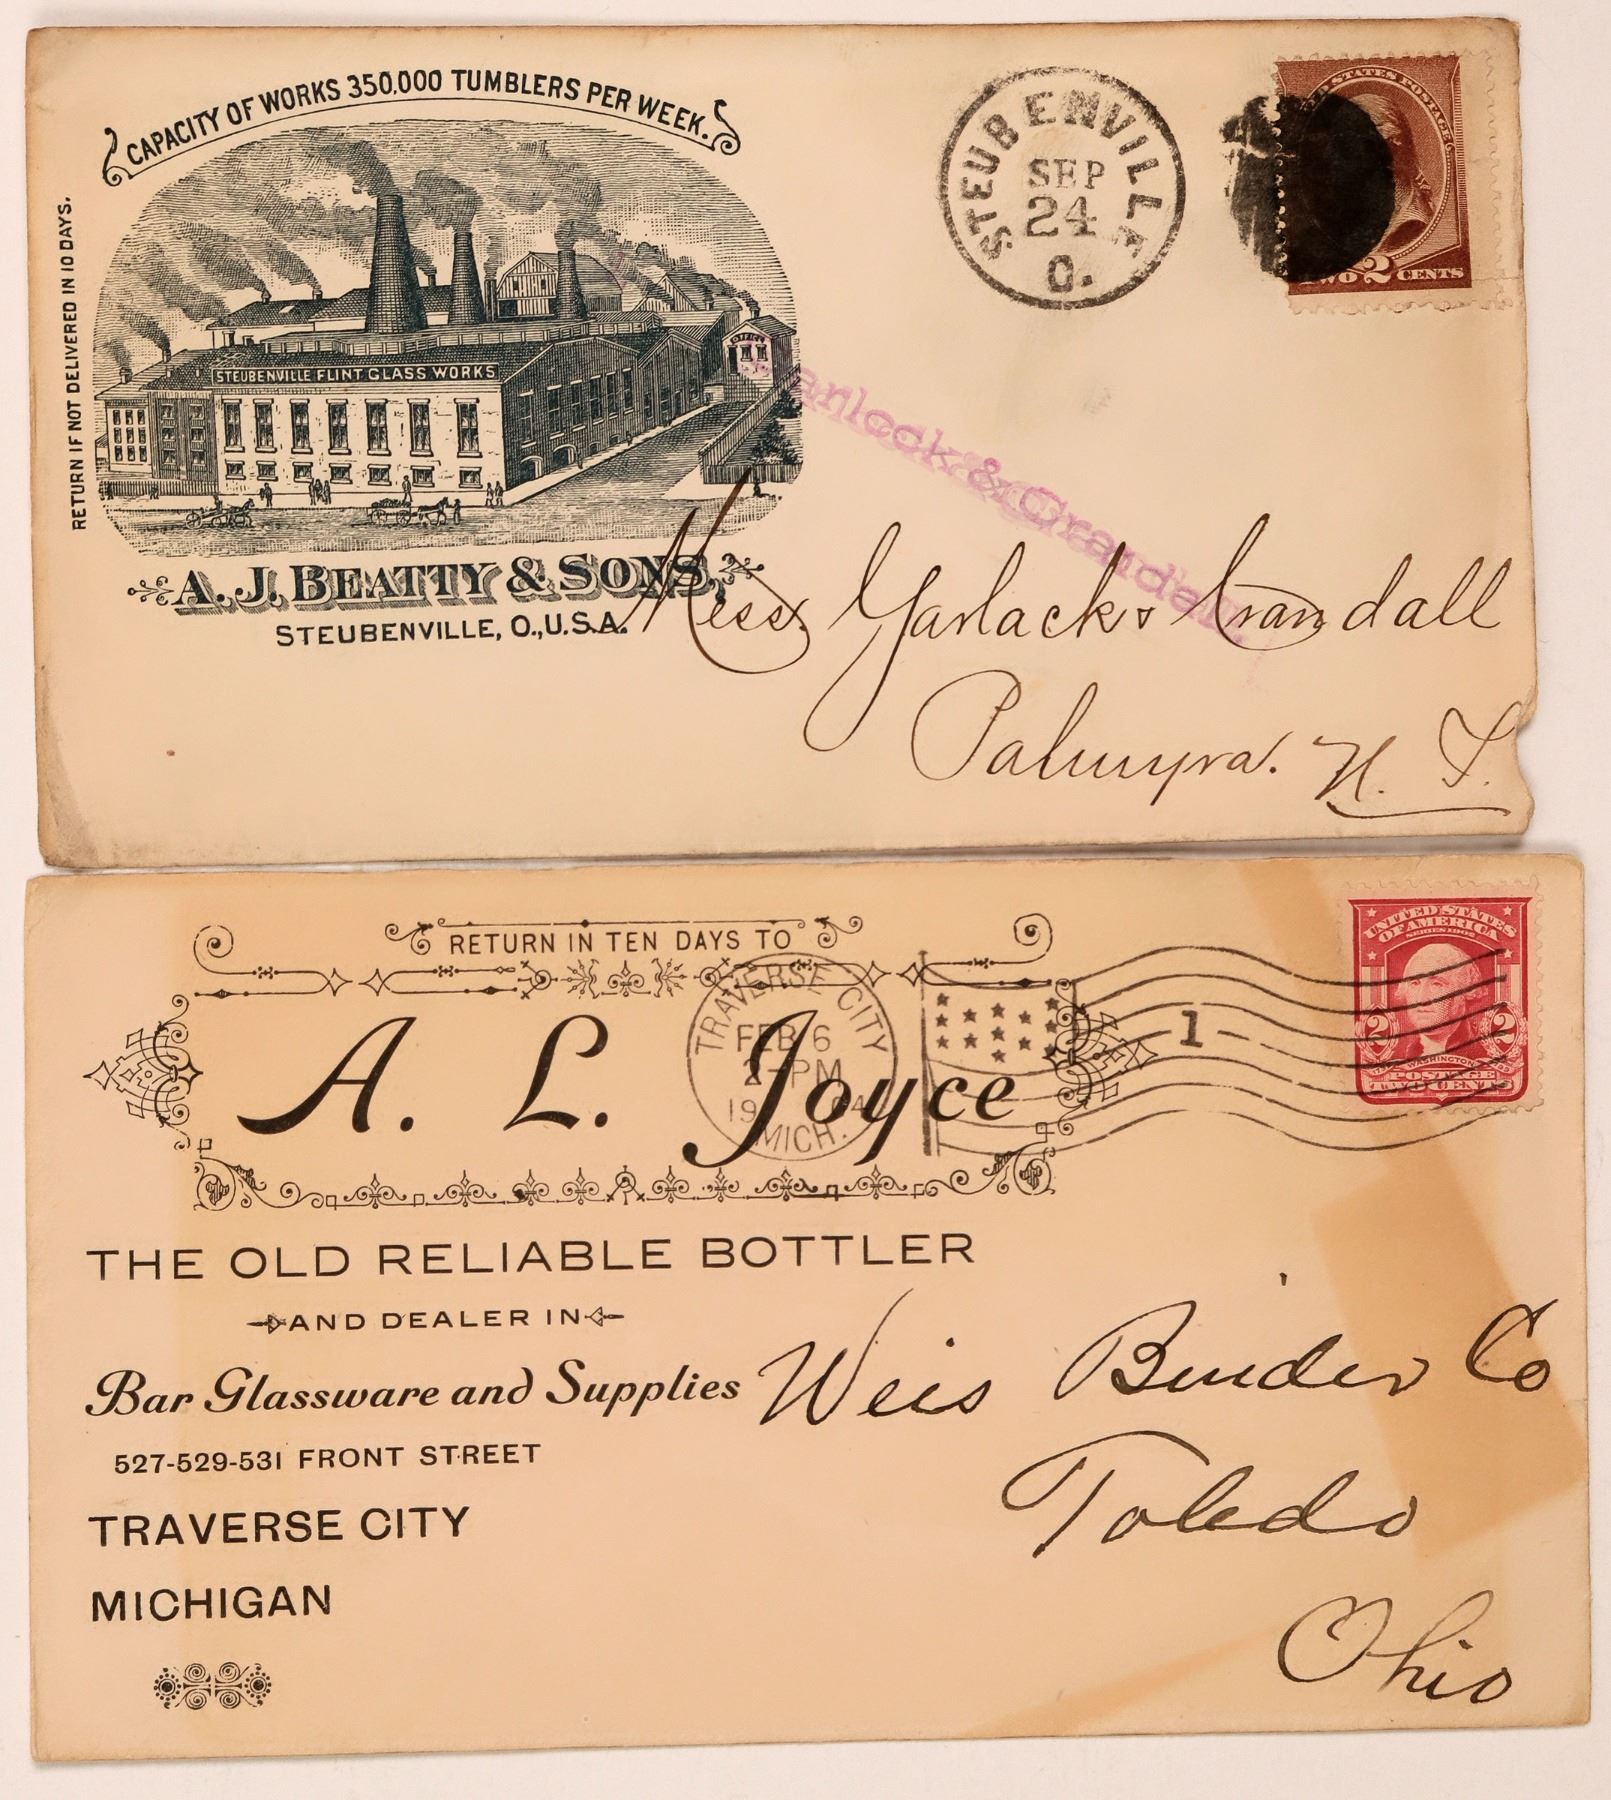 CAPACITY OF WORKS 350,000 TUMBLERS PER WEEK.
RETURN IF NOT DELIVERED IN 10 DAYS.
STEUBENVILLE FLINT GLASS WORKS
OFFICE
A. J. BEATTY & SONS,
STEUBENVILLE, O., U.S.A.
STEUBENVILLE
SEP
24
O.
STATES POSTAGE
TWO 2 CENTS
& Crandall
Mess Garlack & Crandall
Palmyra. N. Y.
RETURN IN TEN DAYS TO
A. L. Joyce
TRAVERSE CITY
FEB 6
2-PM
19 04
MICH.
1
UNITED STATES
OF AMERICA
SERIES 1902
2 2
WASHINGTON
POSTAGE
TWO CENTS
THE OLD RELIABLE BOTTLER
AND DEALER IN
Bar Glassware and Supplies
527-529-531 FRONT STREET
TRAVERSE CITY
MICHIGAN
Weis Binder Co
Toledo
Ohio